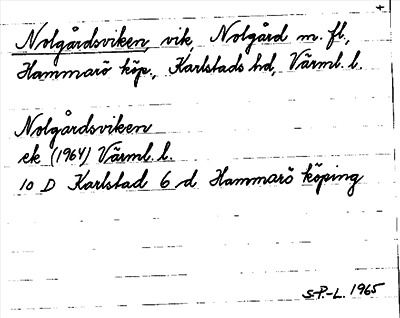 Nolgårdsviken, vik, Nolgård m. fl.,
Hammarö köp., Karlstads hd, Värml. l.
Nolgårdsviken
ek (1964) Värml. l.
10 D Karlstad 6 d Hammarö köping
S.P.-L. 1965